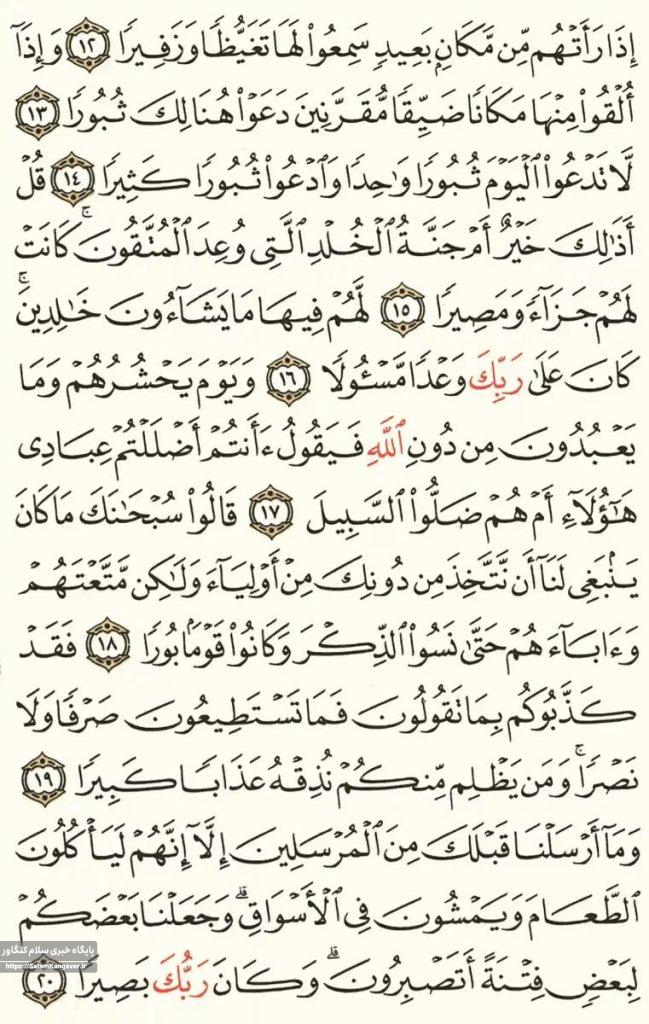 إِذَا رَأَتْهُم مِّن مَّكَانٍۭ بَعِيدٍ سَمِعُوا۟ لَهَا تَغَيُّظًا وَزَفِيرًا ١٢ وَإِذَآ
أُلْقُوا۟ مِنْهَا مَكَانًا ضَيِّقًا مُّقَرَّنِينَ دَعَوْا۟ هُنَالِكَ ثُبُورًا ١٣
لَّا تَدْعُوا۟ ٱلْيَوْمَ ثُبُورًا وَٰحِدًا وَٱدْعُوا۟ ثُبُورًا كَثِيرًا ١٤ قُلْ
أَذَٰلِكَ خَيْرٌ أَمْ جَنَّةُ ٱلْخُلْدِ ٱلَّتِى وُعِدَ ٱلْمُتَّقُونَ ۚ كَانَتْ
لَهُمْ جَزَآءً وَمَصِيرًا ١٥ لَّهُمْ فِيهَا مَا يَشَآءُونَ خَٰلِدِينَ ۚ
كَانَ عَلَىٰ رَبِّكَ وَعْدًا مَّسْـُٔولًا ١٦ وَيَوْمَ يَحْشُرُهُمْ وَمَا
يَعْبُدُونَ مِن دُونِ ٱللَّهِ فَيَقُولُ ءَأَنتُمْ أَضْلَلْتُمْ عِبَادِى
هَٰٓؤُلَآءِ أَمْ هُمْ ضَلُّوا۟ ٱلسَّبِيلَ ١٧ قَالُوا۟ سُبْحَٰنَكَ مَا كَانَ
يَنۢبَغِى لَنَآ أَن نَّتَّخِذَ مِن دُونِكَ مِنْ أَوْلِيَآءَ وَلَٰكِن مَّتَّعْتَهُمْ
وَءَابَآءَهُمْ حَتَّىٰ نَسُوا۟ ٱلذِّكْرَ وَكَانُوا۟ قَوْمًۢا بُورًا ١٨ فَقَدْ
كَذَّبُوكُم بِمَا تَقُولُونَ فَمَا تَسْتَطِيعُونَ صَرْفًا وَلَا
نَصْرًا ۚ وَمَن يَظْلِم مِّنكُمْ نُذِقْهُ عَذَابًا كَبِيرًا ١٩
وَمَآ أَرْسَلْنَا قَبْلَكَ مِنَ ٱلْمُرْسَلِينَ إِلَّآ إِنَّهُمْ لَيَأْكُلُونَ
ٱلطَّعَامَ وَيَمْشُونَ فِى ٱلْأَسْوَاقِ ۗ وَجَعَلْنَا بَعْضَكُمْ
لِبَعْضٍ فِتْنَةً أَتَصْبِرُونَ ۗ وَكَانَ رَبُّكَ بَصِيرًا ٢٠
پایگاه خبری سلام کنگاور
https://SalamKangavar.ir